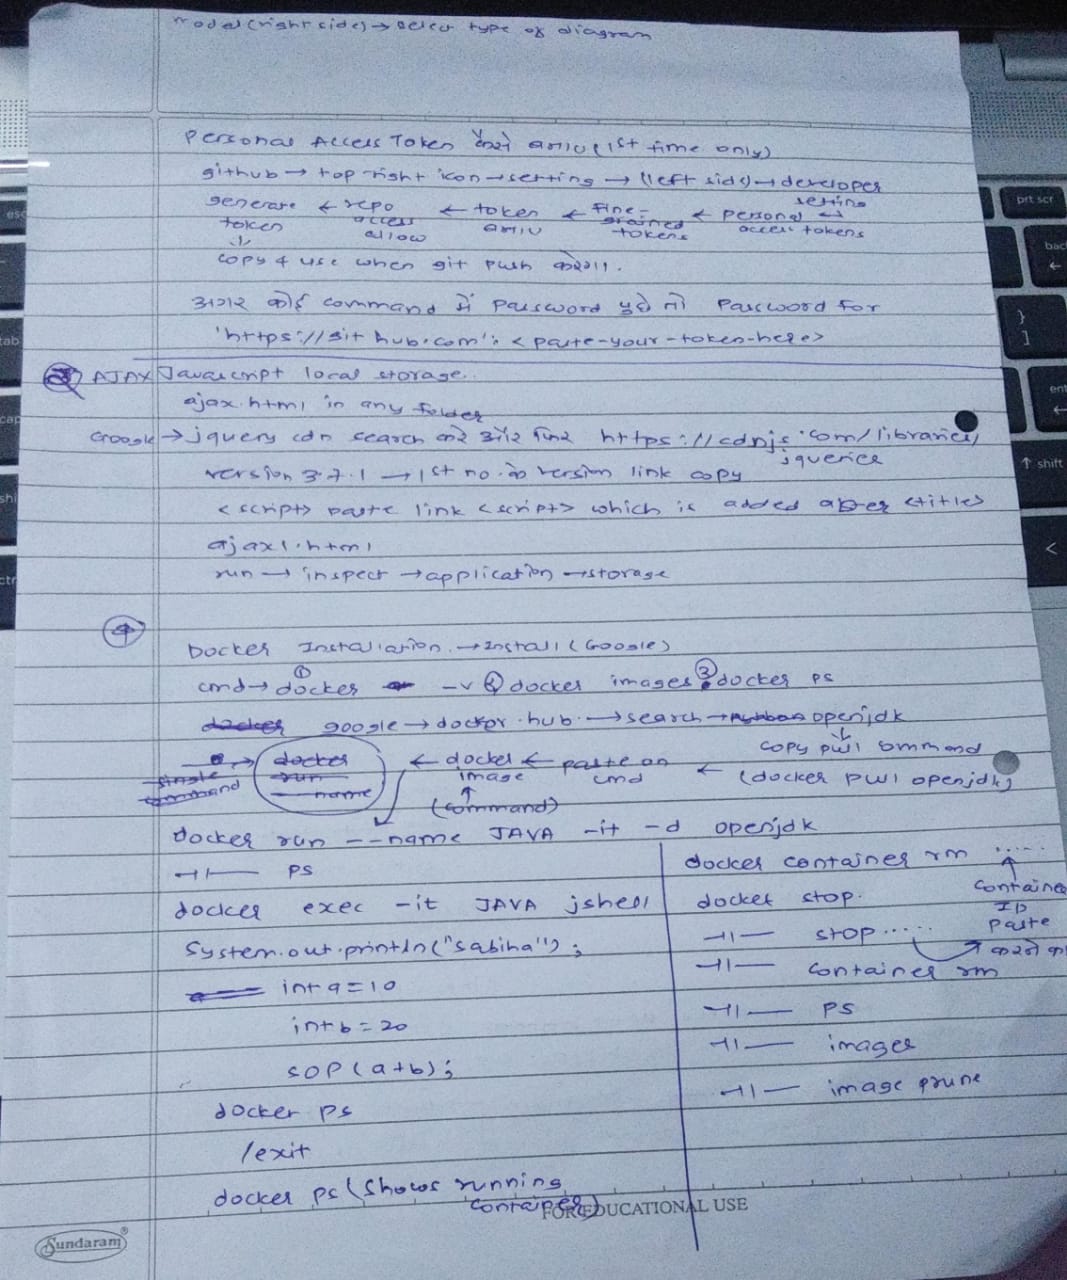 model (right side) → select type of diagram
Personal Access Token कैसे बनाएं (1st time only)
github → top right icon → setting → (left side) → developer setting
generate token ← repo access allow ← token बनाएं ← Fine-grained tokens ← personal access tokens ↵
↓
copy & use when git push करेगा.
अगर कोई command में password पूछे तो Password for
'https://github.com': <paste-your-token-here>
AJAX Javascript local storage.
ajax.html in any folder
Google → jquery cdn search करे और फिर https://cdnjs.com/libraries/jqueries
version 3.7.1 → 1st no. के version link copy
<script> paste link <script> which is added after <title>
ajax1.html
run → inspect → application → storage
④
Docker Installation. → Install (Google)
cmd → ① docker -v ② docker images ③ docker ps
docker google → docker.hub. → search → python openjdk
↓
copy pull command
(docker pull openjdk)
← paste on cmd
← docker image
↑
(command)
→ docker run --name
single command
docker run --name JAVA -it -d openjdk
-11- ps
docker exec -it JAVA jshell
System.out.println("Sabiha");
int a=10
int b=20
SOP(a+b);
docker ps
/exit
docker ps (shows running container)
docker container rm .....
↑
Container ID Paste करने का
docker stop.
-11- stop.....
-11- container rm
-11- PS
-11- images
-11- image prune
FOR EDUCATIONAL USE
Sundaram®
esc
tab
cap
shi
ctr
prt scr
bac
←
}
]
ent
↑ shift
<